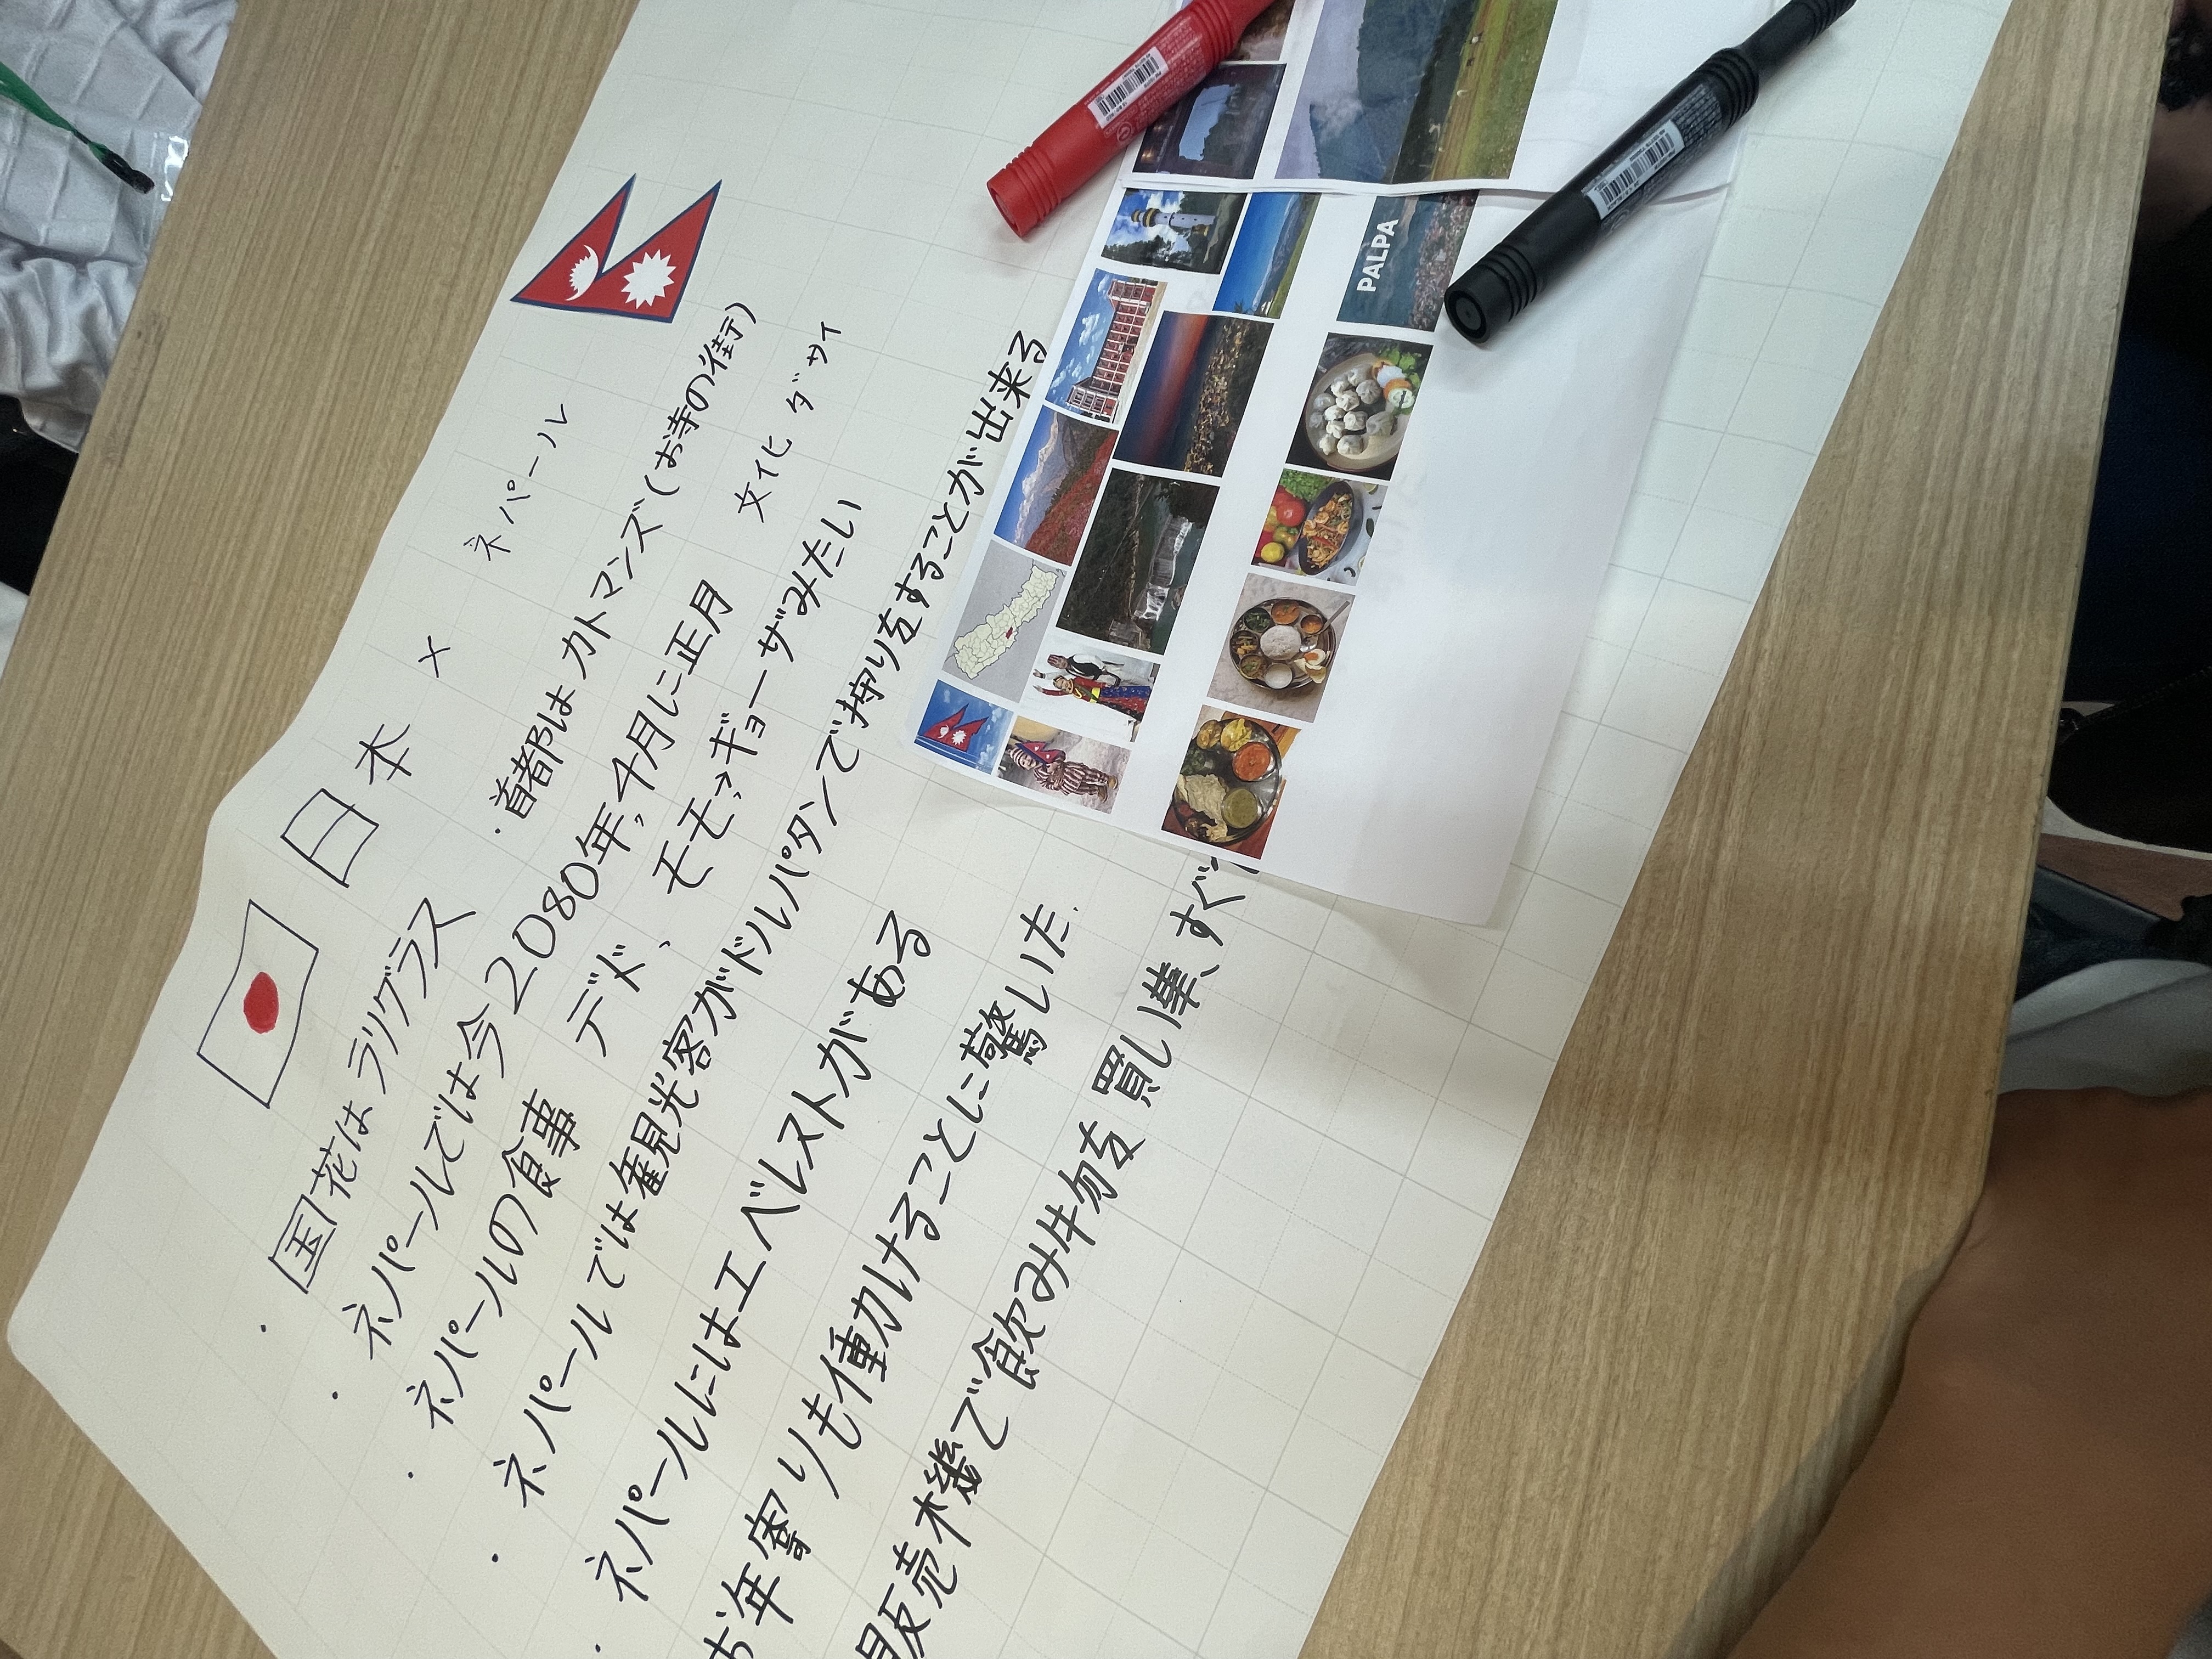 日本 × ネパール
・国花はラリグラス
・首都はカトマンズ(お寺の街)
・ネパールでは今2080年,4月に正月
文化 ダサイ
・ネパールの食事 デド、モモ→ギョーザみたい
・ネパールでは観光客がドルパタンで狩りをすることが出来る
・ネパールにはエベレストがある
お年寄りも働けることに驚いた.
販売機で飲み物を買い
すぐ
PALPA